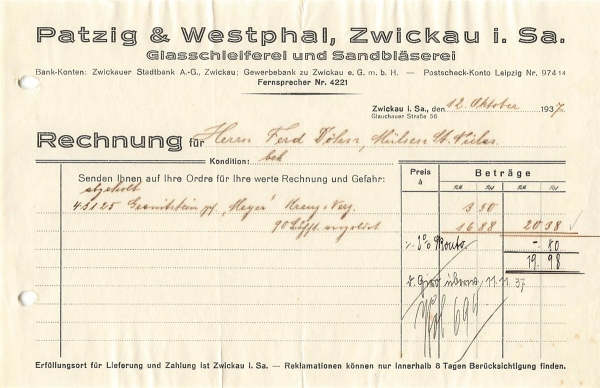 Patzig & Westphal, Zwickau i. Sa.
Glasschleiferei und Sandbläserei
Bank-Konten: Zwickauer Stadtbank A.-G., Zwickau; Gewerbebank zu Zwickau e. G. m. b. H. — Postscheck-Konto Leipzig Nr. 974 14
Fernsprecher Nr. 4221
Zwickau i. Sa., den 12. Oktober 1937.
Glauchauer Straße 56
Rechnung für Herrn Ferd Döhn, Mülsen St. Niclas.
Kondition:
Senden Ihnen auf Ihre Ordre für Ihre werte Rechnung und Gefahr:
Preis à
Beträge
RM Rpf RM Rpf
abgeholt
43125 "Meyer" 3 50
90 16 88 20 38
% 3% Skonto -. 40
19. 98
d. Giro überw. 11. 11. 37
699
Erfüllungsort für Lieferung und Zahlung ist Zwickau i. Sa. — Reklamationen können nur innerhalb 8 Tagen Berücksichtigung finden.